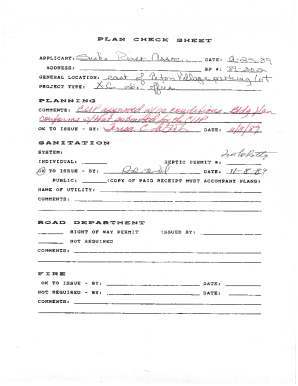 PLAN CHECK SHEET
APPLICANT: Snake River Assoc. DATE:
ADDRESS: BP #: 89-
GENERAL LOCATION: east of Teton Village parking lot
PROJECT TYPE: X.C. ski office
PLANNING
COMMENTS: CUP approved w/no conditions. Bldg plan
conforms w/that submitted for the CUP
OK TO ISSUE - BY: Teresa C. DATE: 11/8/89
SANITATION
SYSTEM:
INDIVIDUAL: SEPTIC PERMIT #:
OK TO ISSUE - BY: DATE: 11-8-89
PUBLIC: (COPY OF PAID RECEIPT MUST ACCOMPANY PLANS)
NAME OF UTILITY:
COMMENTS:
ROAD DEPARTMENT
RIGHT OF WAY PERMIT ISSUED BY:
NOT REQUIRED
COMMENTS:
FIRE
OK TO ISSUE - BY: DATE:
NOT REQUIRED - BY: DATE:
COMMENTS: